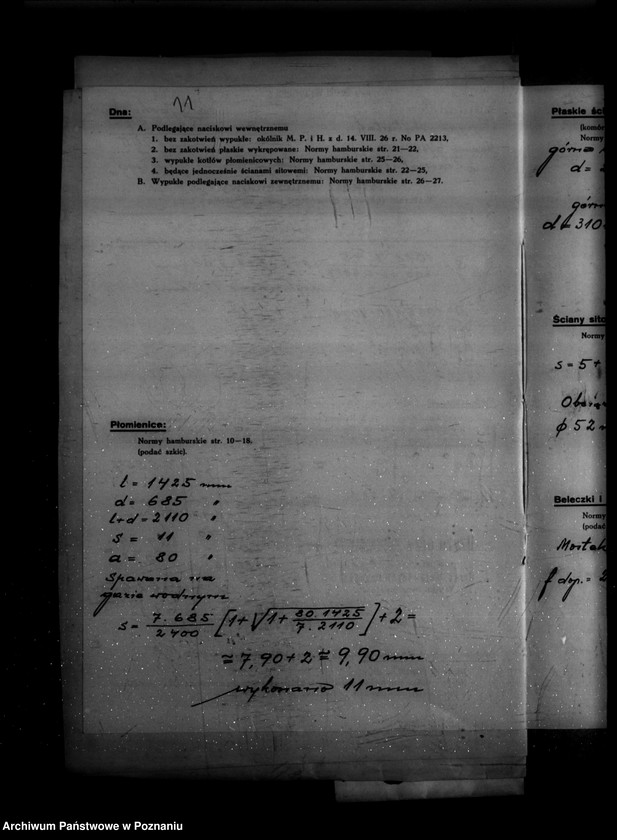 11
Dna:
A. Podlegające naciskowi wewnętrznemu
1. bez zakotwień wypukłe: okólnik M. P. i H. z d. 14. VIII. 26 r. No PA 2213,
2. bez zakotwień płaskie wykrępowane: Normy hamburskie str. 21—22,
3. wypukłe kotłów płomienicowych: Normy hamburskie str. 25—26,
4. będące jednocześnie ścianami sitowemi: Normy hamburskie str. 22—25,
B. Wypukłe podlegające naciskowi zewnętrznemu: Normy hamburskie str. 26—27.
Płomienice:
Normy hamburskie str. 10—18.
(podać szkic).
l = 1425 mm
d = 685 "
l+d = 2110 "
s = 11 "
a = 80 "
Spawana na
gazie wodnym
s = 7.685/2400 [1+√1+ 80.1425/7.2110] +2 =
≅ 7,90 + 2 ≅ 9,90 mm
wykonano 11 mm
Płaskie
Normy
górna
d =
d = 310
Ściany
Normy
s = 5 +
φ 52
Beleczki i
Normy
(podać
f dop. = 2
Archiwum Państwowe w Poznaniu